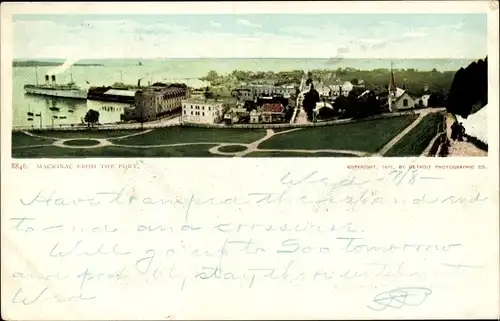 8846. MACKINAC FROM THE FORT.
COPYRIGHT, 1905, BY DETROIT PHOTOGRAPHIC CO.
Wed — 7/8 —
Have tramped the island end
to end and crosswise.
Will go up to Soo tomorrow
and probably stay there until next
Wed